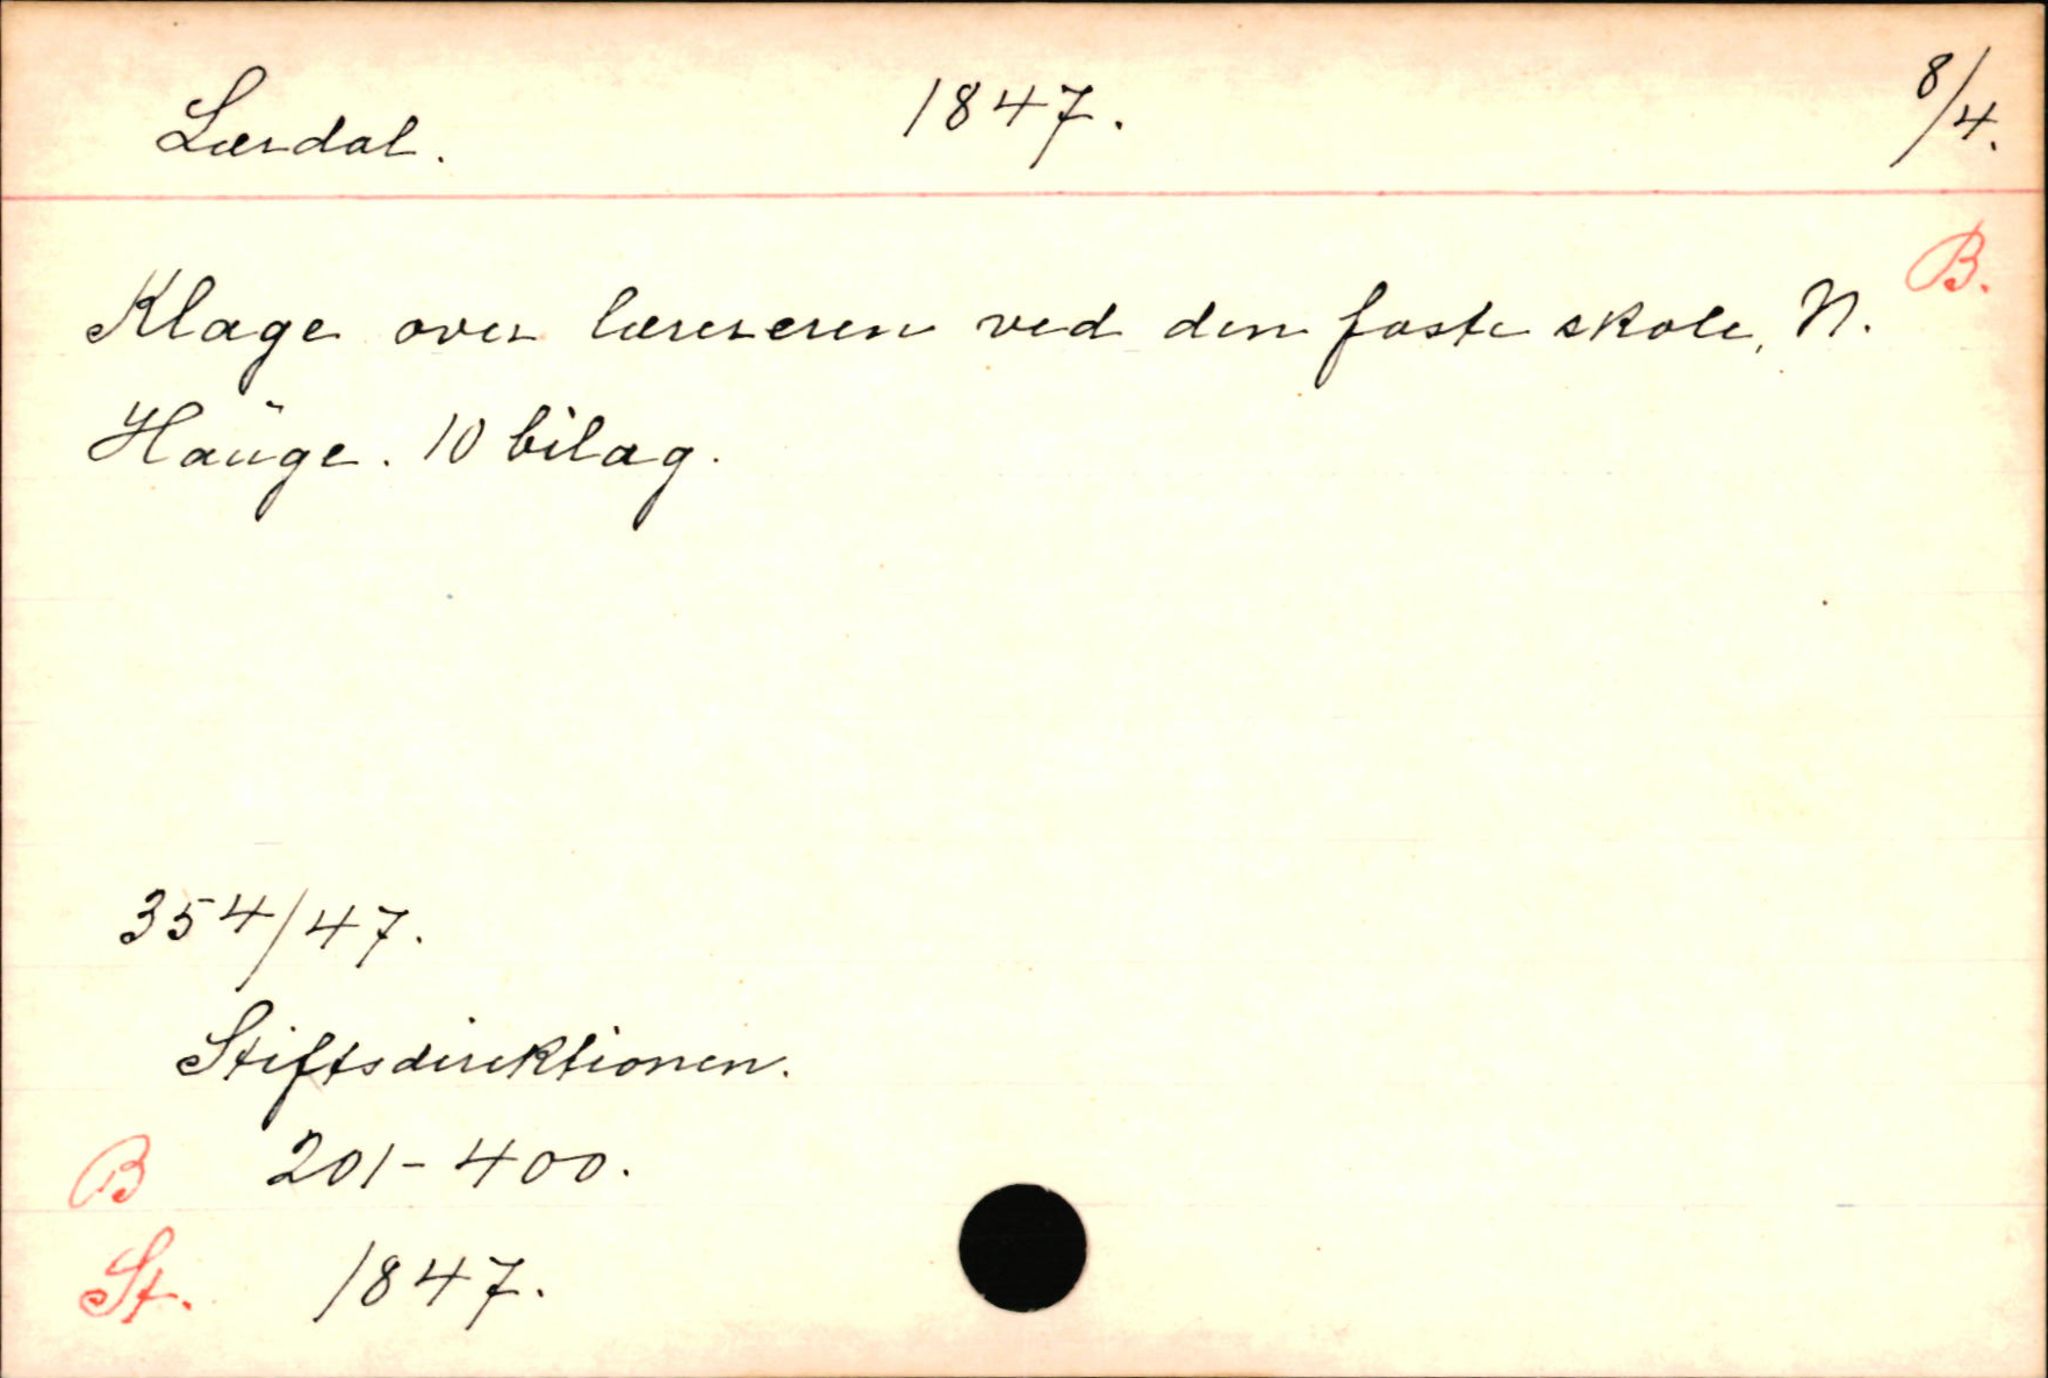 Lærdal. 1847. 8/4.
B.
Klage over læreren ved den faste skole, N.
Hauge. 10 bilag.
354/47.
Stiftsdirektionen.
B 201-400.
St. 1847.